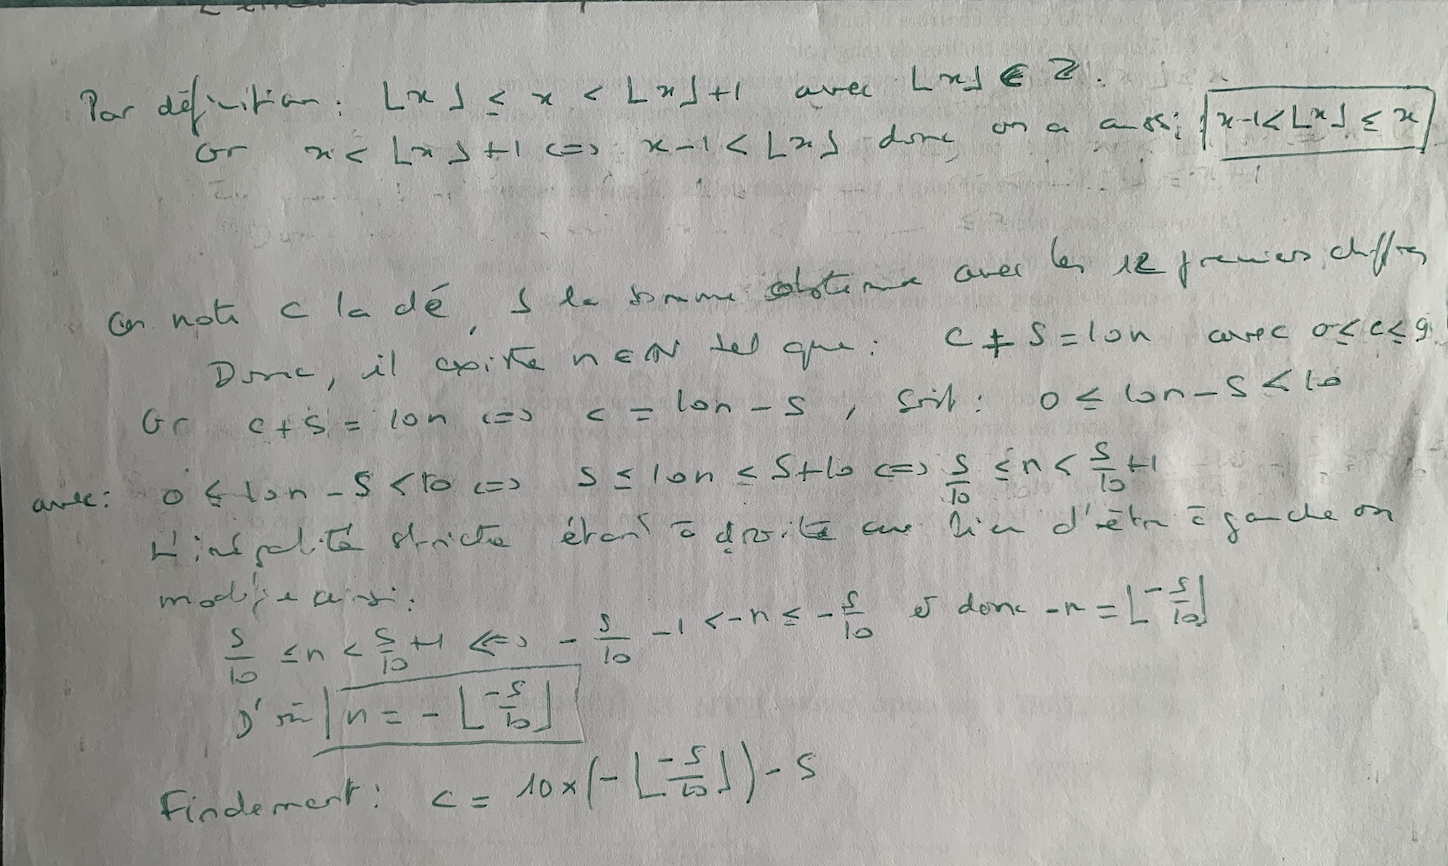 Par définition : ⌊x⌋ ≤ x < ⌊x⌋+1 avec ⌊x⌋ ∈ ℤ.
Or x < ⌊x⌋+1 <=> x-1 < ⌊x⌋ donc on a aussi x-1<⌊x⌋ ≤ x
On note c la clé, S la somme obtenue avec les 12 premiers chiffres
Donc, il existe n ∈ ℕ tel que : c + S = 10n avec 0≤c≤9
Or c+S = 10n <=> c = 10n - S, soit : 0 ≤ 10n-S < 10
avec : 0 ≤ 10n - S < 10 <=> S ≤ 10n ≤ S+10 <=> S/10 ≤ n < S/10 +1
L'inégalité stricte étant à droite au lieu d'être à gauche on
modifie ainsi :
S/10 ≤ n < S/10 +1 <=> - S/10 -1 < -n ≤ - S/10 et donc -n = ⌊-S/10⌋
D'où n = - ⌊-S/10⌋
Finalement : c = 10×(-⌊-S/10⌋) - S